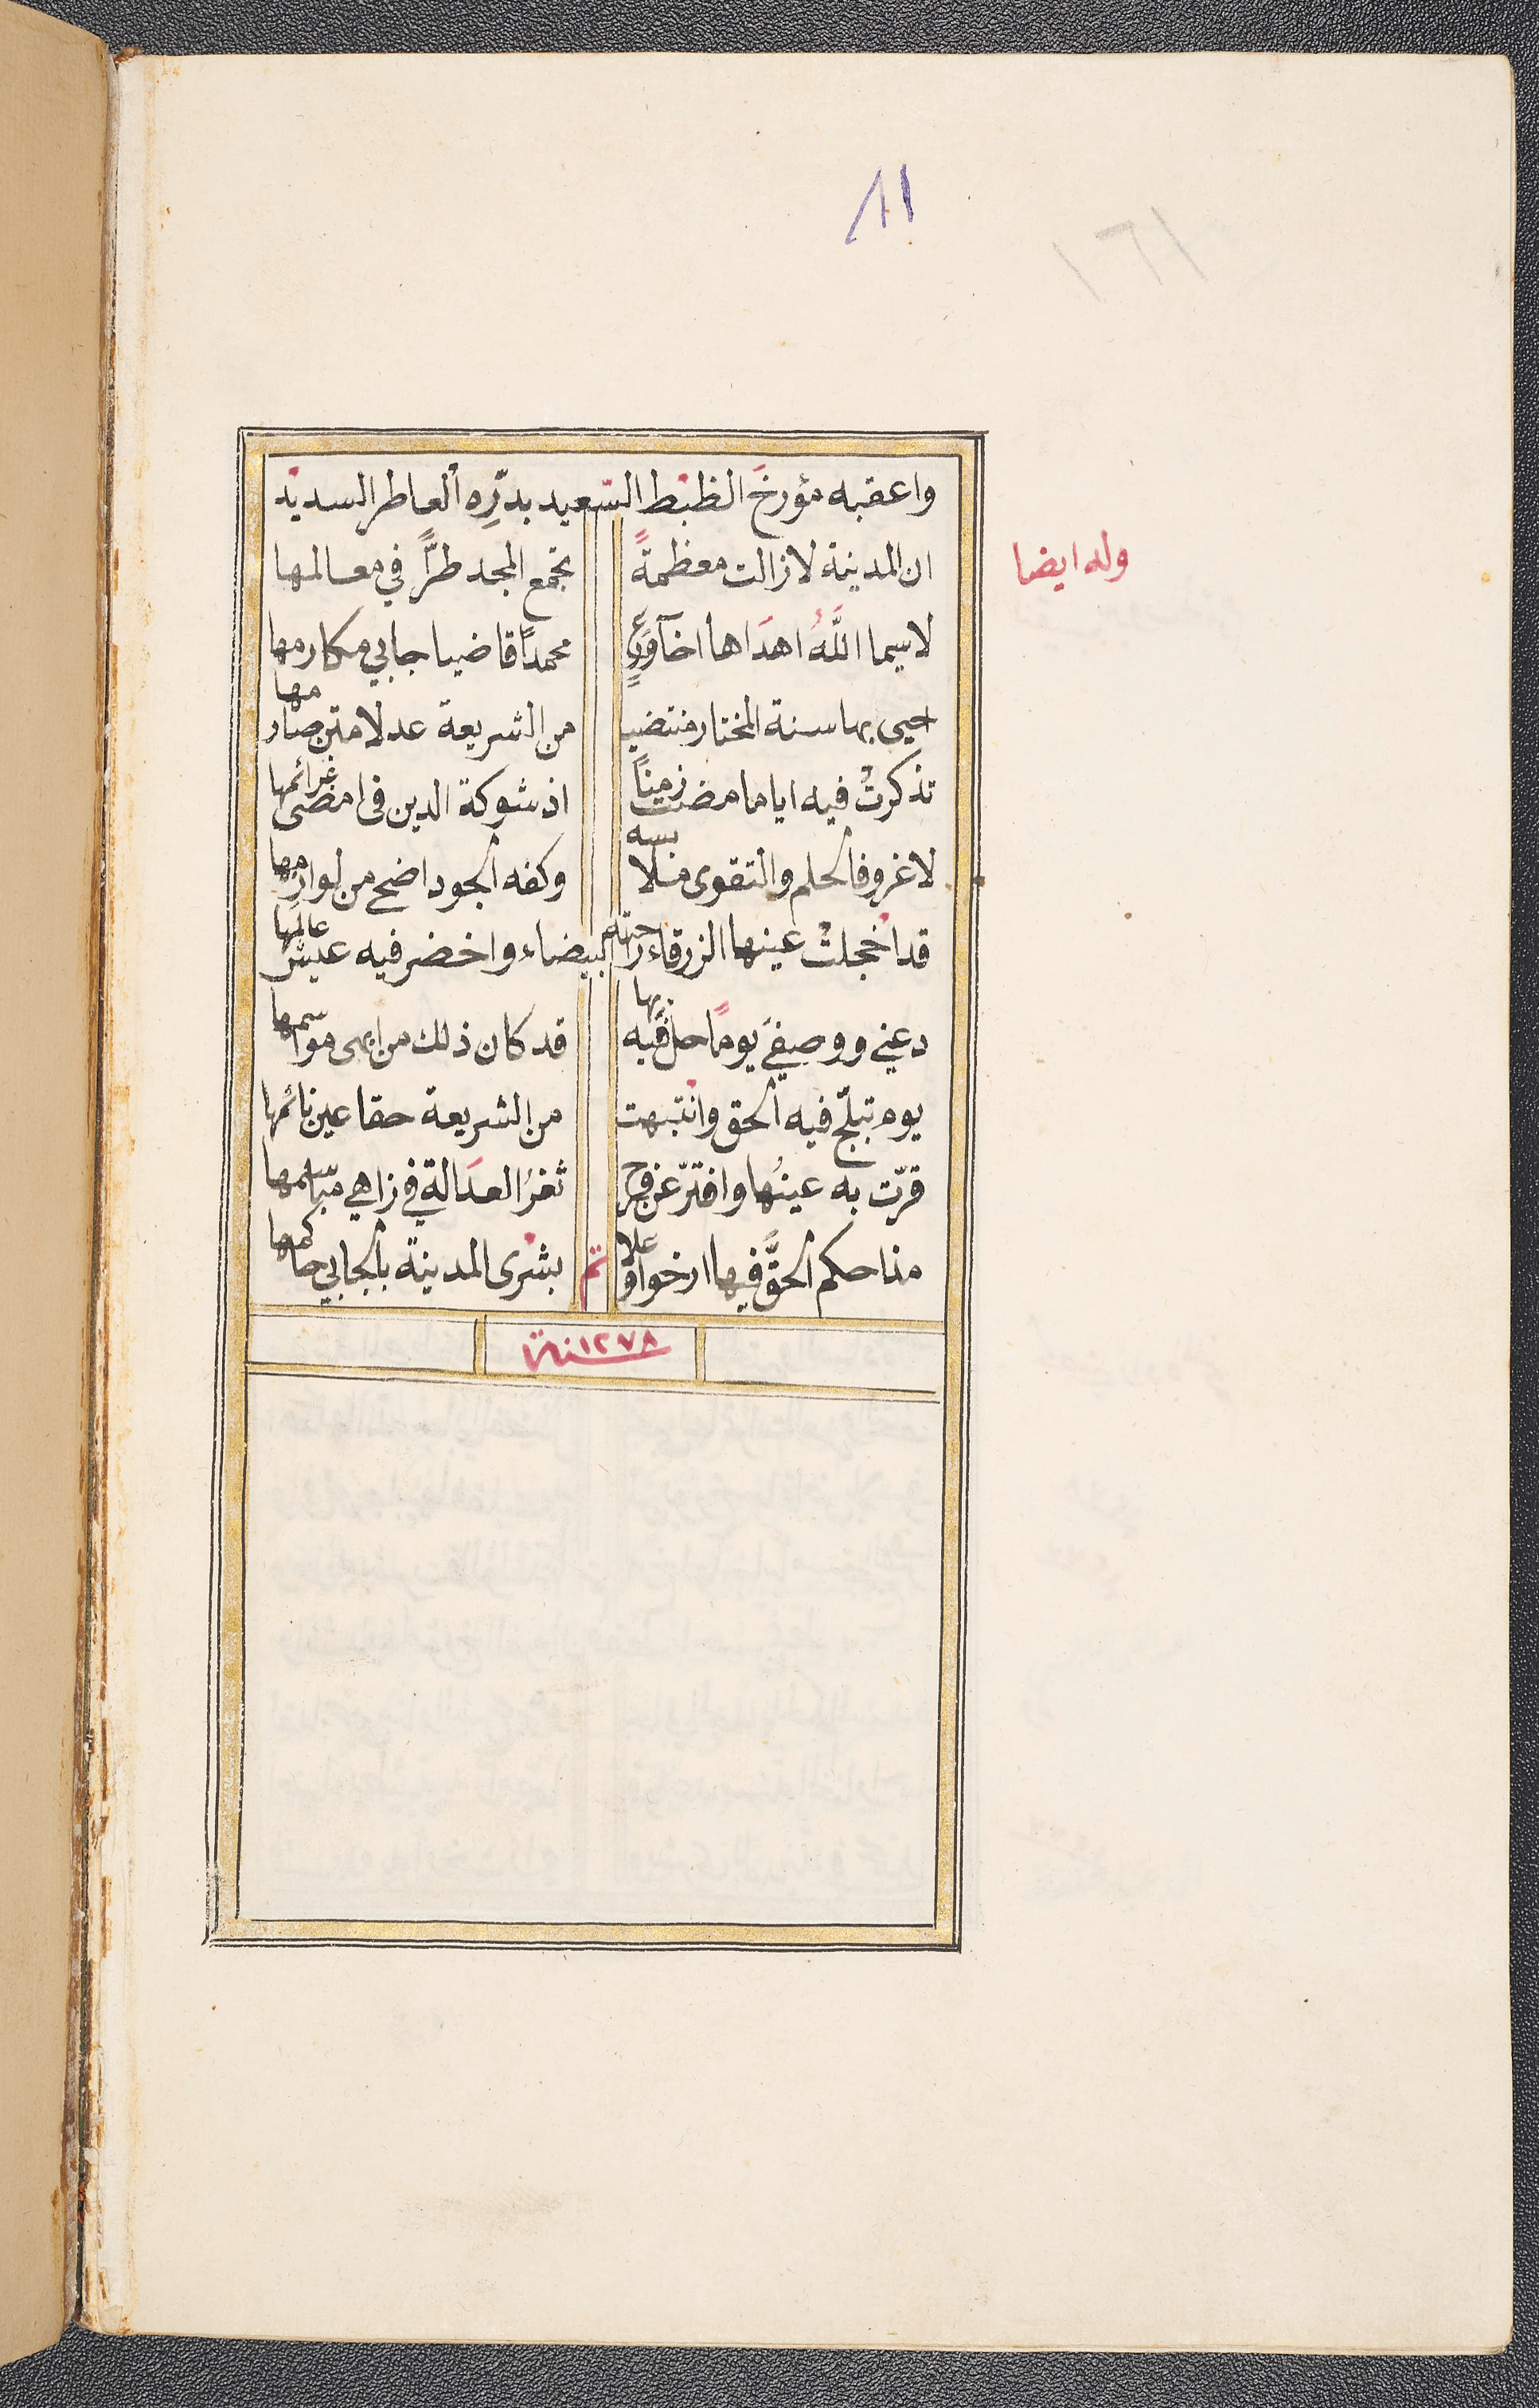 ١١
١٢١
واعقبه مؤرخَ الظبط السّعيد بدرِّه العاطر السديد
وله ايضا
ان المدينة لازالت معظمةً تجمع المجد طرًّا في معالمها
لاسيما اللَّهُ اهدَاها اخآورعٍ محمدًا قاضيا جابي مكارمها
احيى بها سنة المختار منتضيا من الشريعة عدلا متن صارمها
تذكرتْ فيه اياما مضت زمنًا اذ شوكة الدين في امضى غرائمها
لاغروفالحلم والتقوى ملابسه وكفه الجود اضحى من لوازمها
قد اخجلتْ عينها الزرقاء راحته البيضاء واخضر فيه عيش عالمها
دعني ووصفيَ يومًا حلّ فيه بها قد كان ذلك من ابهى مواسمها
يوم تبلّج فيه الحق وانْتبهت من الشريعة حقا عين نائمها
قرّت به عينُها وافترّ عن فرح ثغرُ العدَالة في زاهي مباسمها
مذا حكم الحقَّ فيها ارخوا وعلا تم بشْرى المدينة بالجابي حاكمها
سنة ١٢٧٨